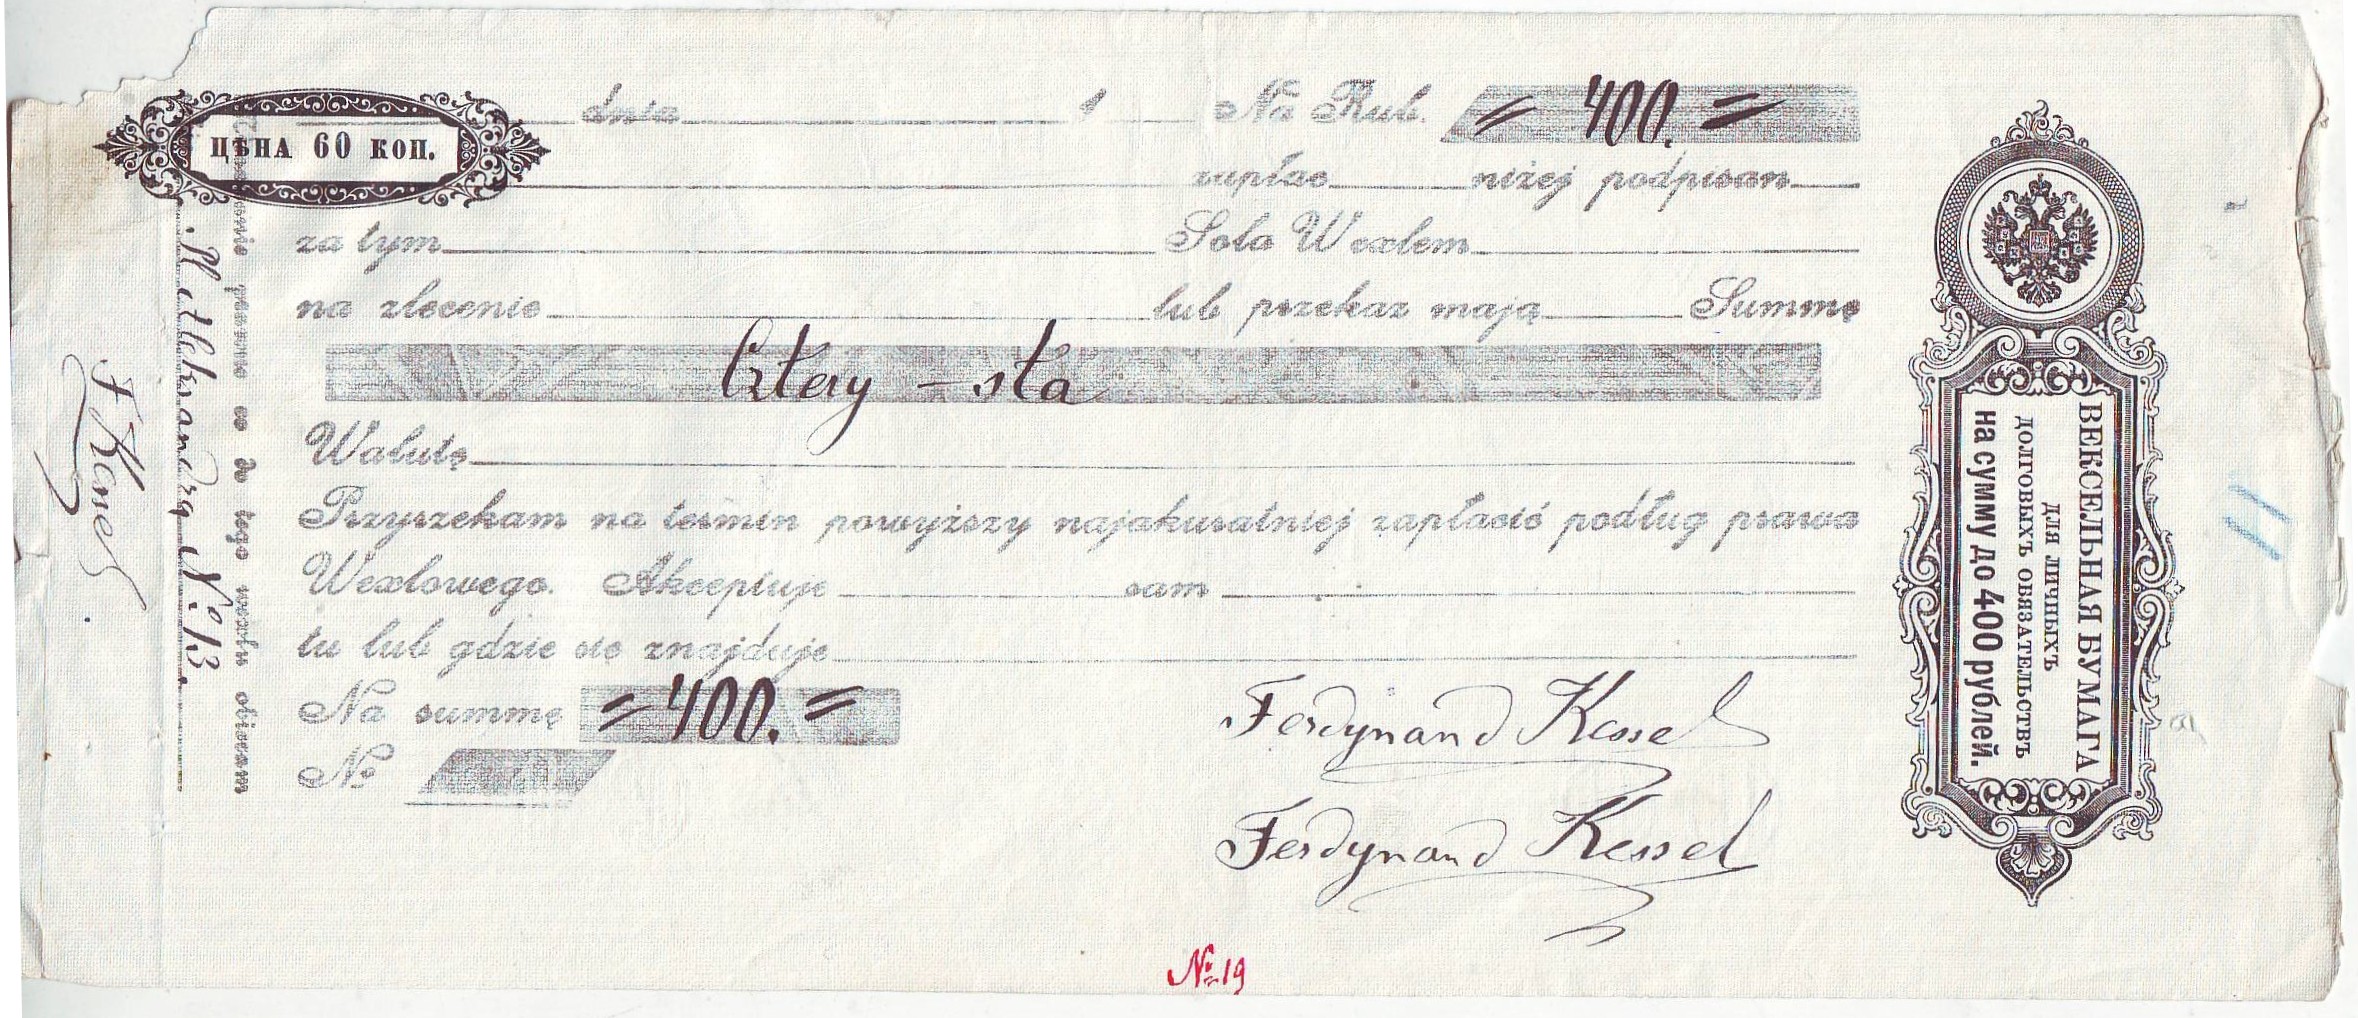 ЦѢНА 60 КОП.
dnia 1 Na Rub. = 400. =
zapłac niżej podpisan
za tym Sola Wexlem
na zlecenie lub przekaz mają Summę
Cztery - sta
Walutę
Przyrzekam na termin powyższy najakuratniej zapłacić podług prawa
Wexlowego. Akceptuje sam
tu lub gdzie się znajduje
Na summę = 400. =
No
Ferdynand Kessel
Ferdynand Kessel
№ 19
ВЕКСЕЛЬНАЯ БУМАГА
ДЛЯ ЛИЧНЫХЪ
ДОЛГОВЫХЪ ОБЯЗАТЕЛЬСТВЪ
на сумму до 400 рублей.
pisane co do tego wexlu obieram
Aleksandra No. 13.
F Kessel